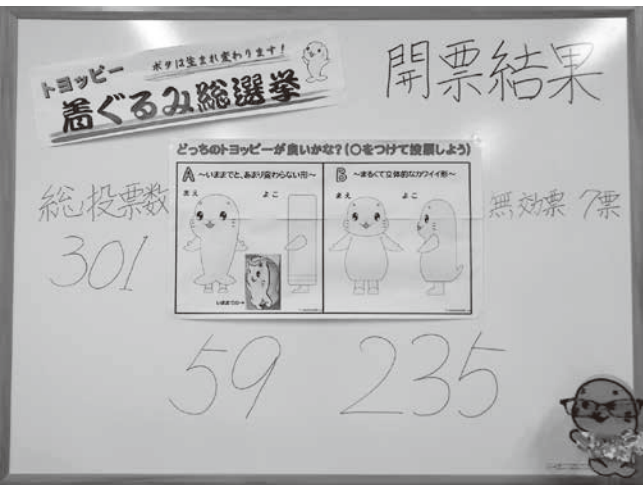 トヨッピー
ボクは生まれ変わります!
着ぐるみ総選挙
開票結果
どっちのトヨッピーが良いかな?(○をつけて投票しよう)
A ~いままでと、あまり変わらない形~
まえ
よこ
いままでの→
B ~まるくて立体的なカワイイ形~
まえ
よこ
総投票数
301
無効票 7票
59
235